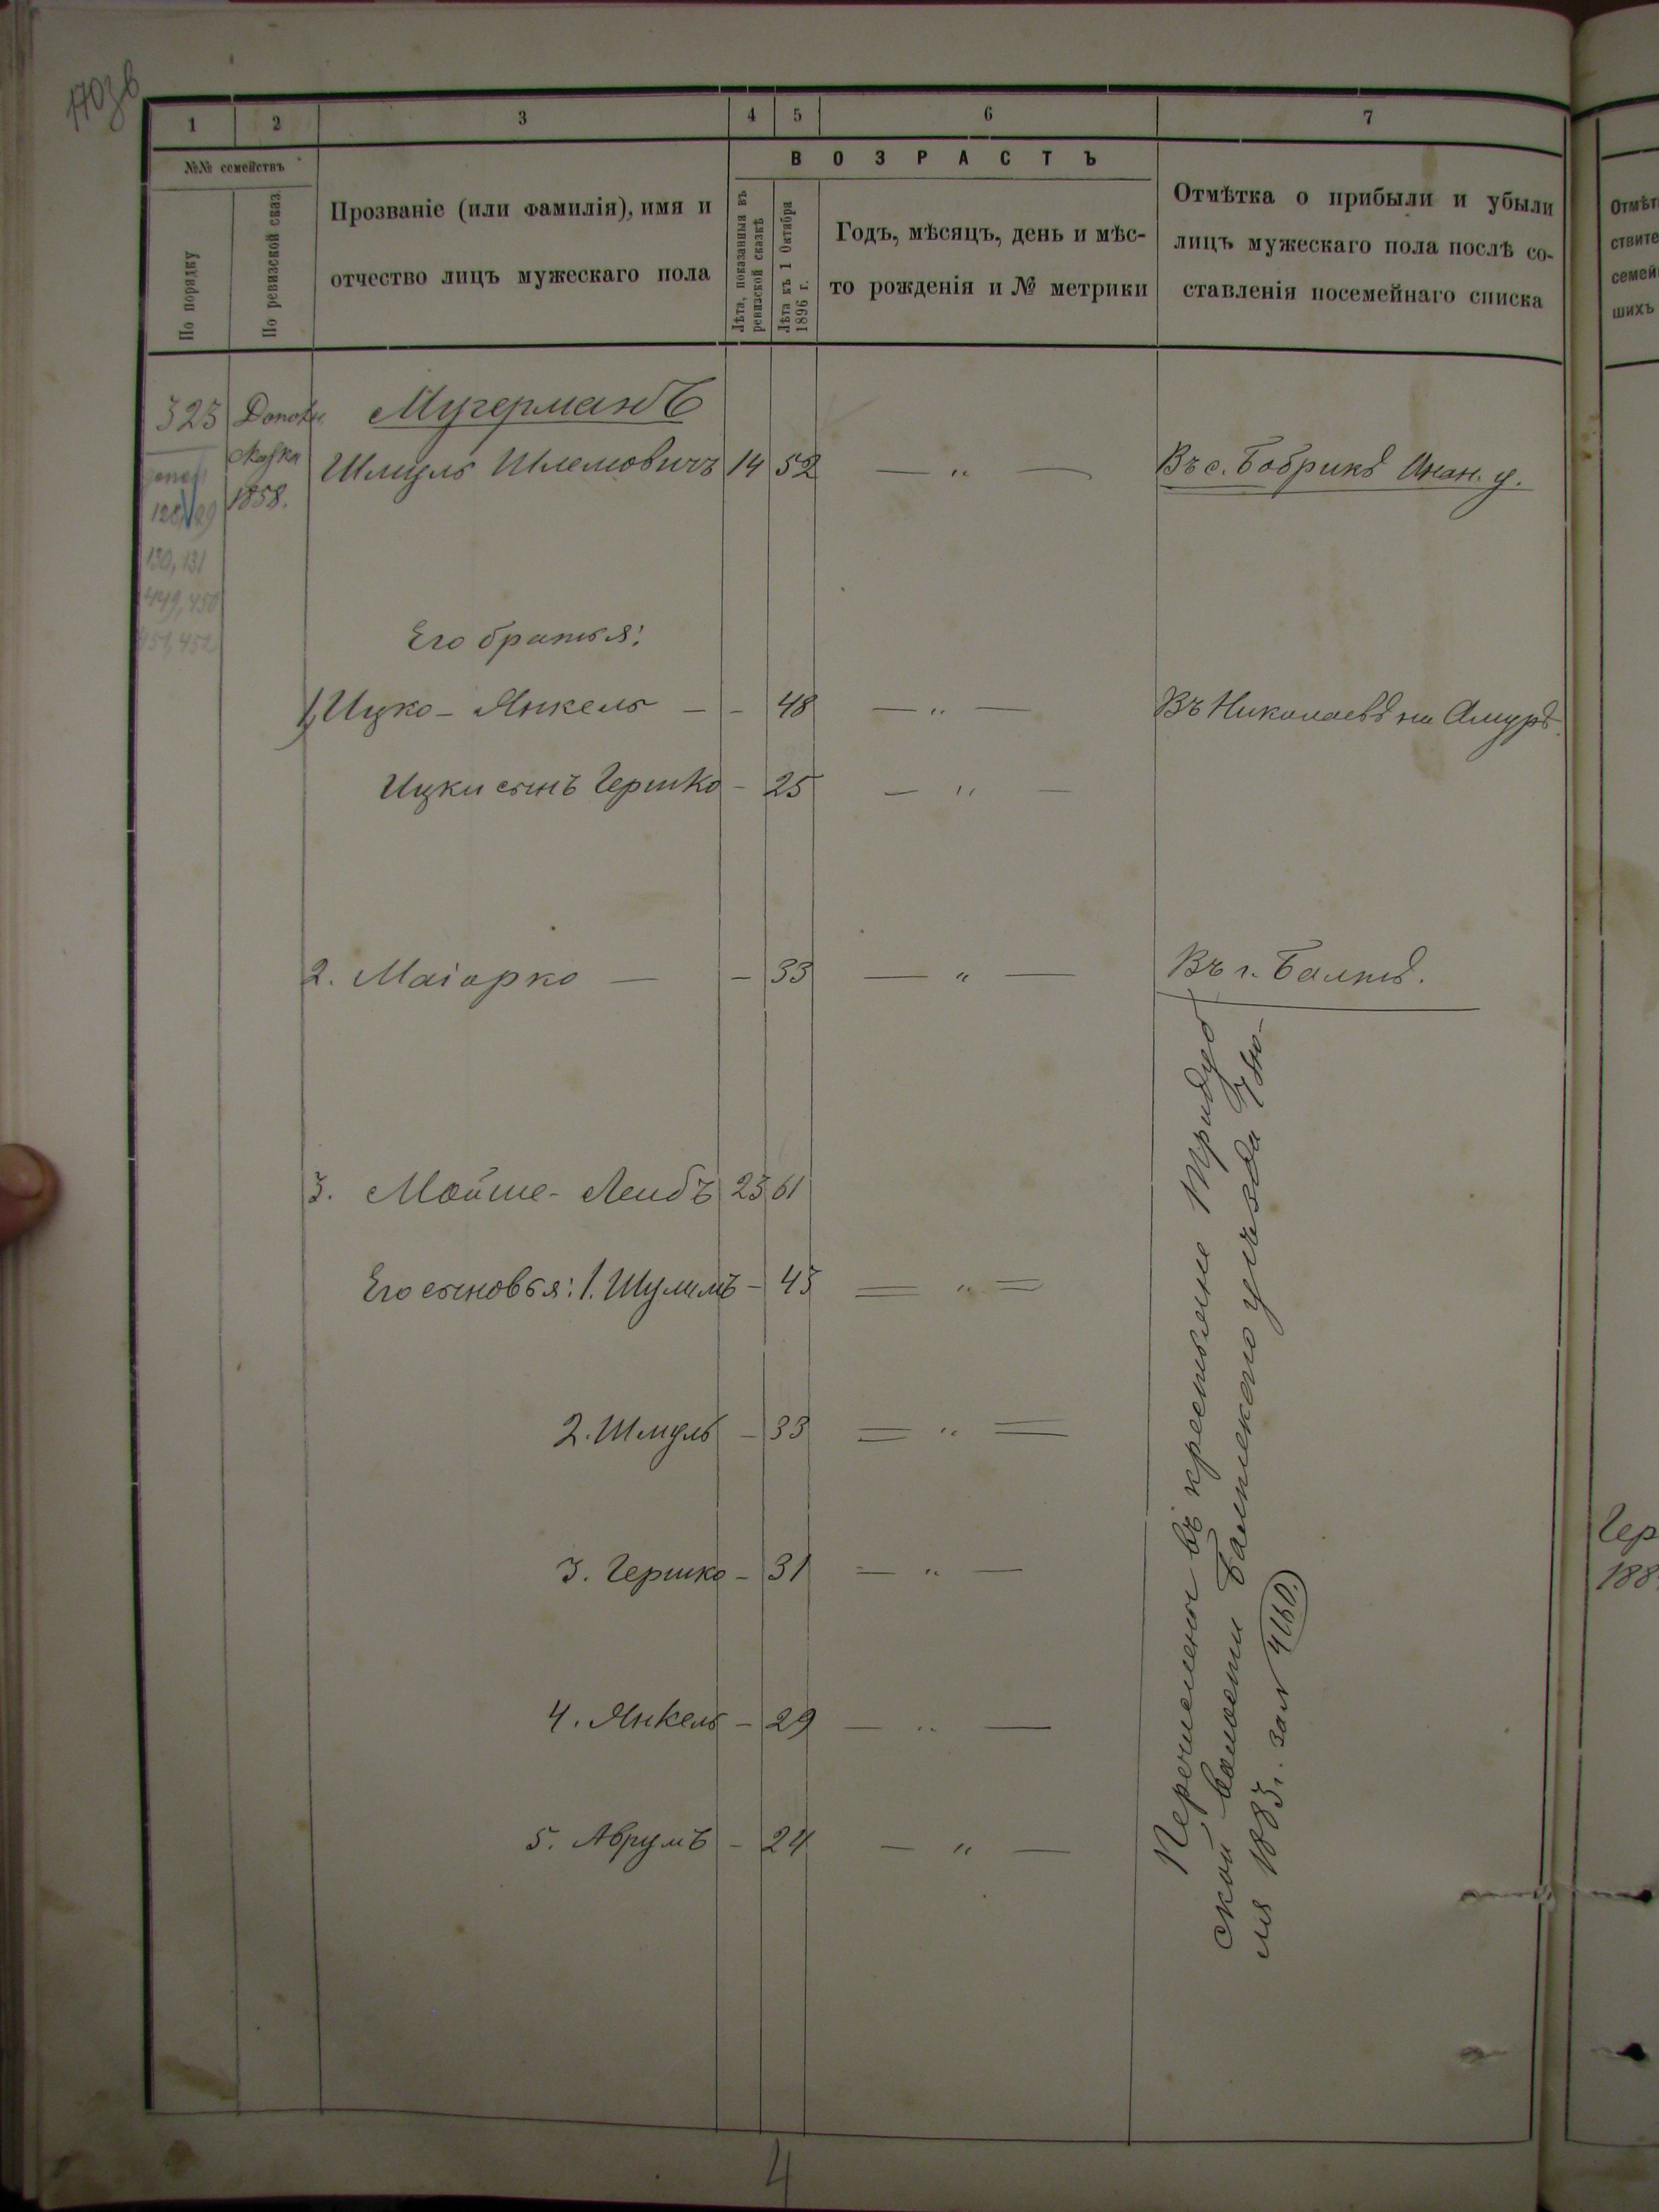 1703 в
1 2 3 4 5 6 7
№№ семействъ
По порядку
По ревизской сказ.
Прозваніе (или фамилія), имя и
отчество лицъ мужескаго пола
ВОЗРАСТЪ
Лѣта, показанныя въ
ревизской сказкѣ
Лѣта къ 1 Октября
1896 г.
Годъ, мѣсяцъ, день и мѣс-
то рожденія и № метрики
Отмѣтка о прибыли и убыли
лицъ мужескаго пола послѣ со-
ставленія посемейнаго списка
323
130, 131
449, 450
451, 452
сказка
1858.
Мугерманъ
Шмуль Шлемовичъ 14 52 — „ — Въ с. Бобрикѣ Анан. у.
Его братья:
1, Ицко - Янкель — - 48 — „ — Въ Николаевѣ на Амурѣ
Ицки сынъ Гершко - 25 — „ —
2. Маіорко — - 33 — „ — Въ г. Балтѣ.
3. Мойше - Лейбъ 23 61
Его сыновья: 1. Шулимъ - 43 = „ =
2. Шмуль - 33 = „ =
3. Гершко - 31 — „ —
4. Янкель - 29 — „ —
5. Аврумъ - 24 — „ —
Перечислены въ крестьяне Тридуб
ской волости Балтскаго уѣзда 7 Ію-
ля 1883 г. за № 4160.
4
Отмѣт
ствите
семей
шихъ
Гер
188